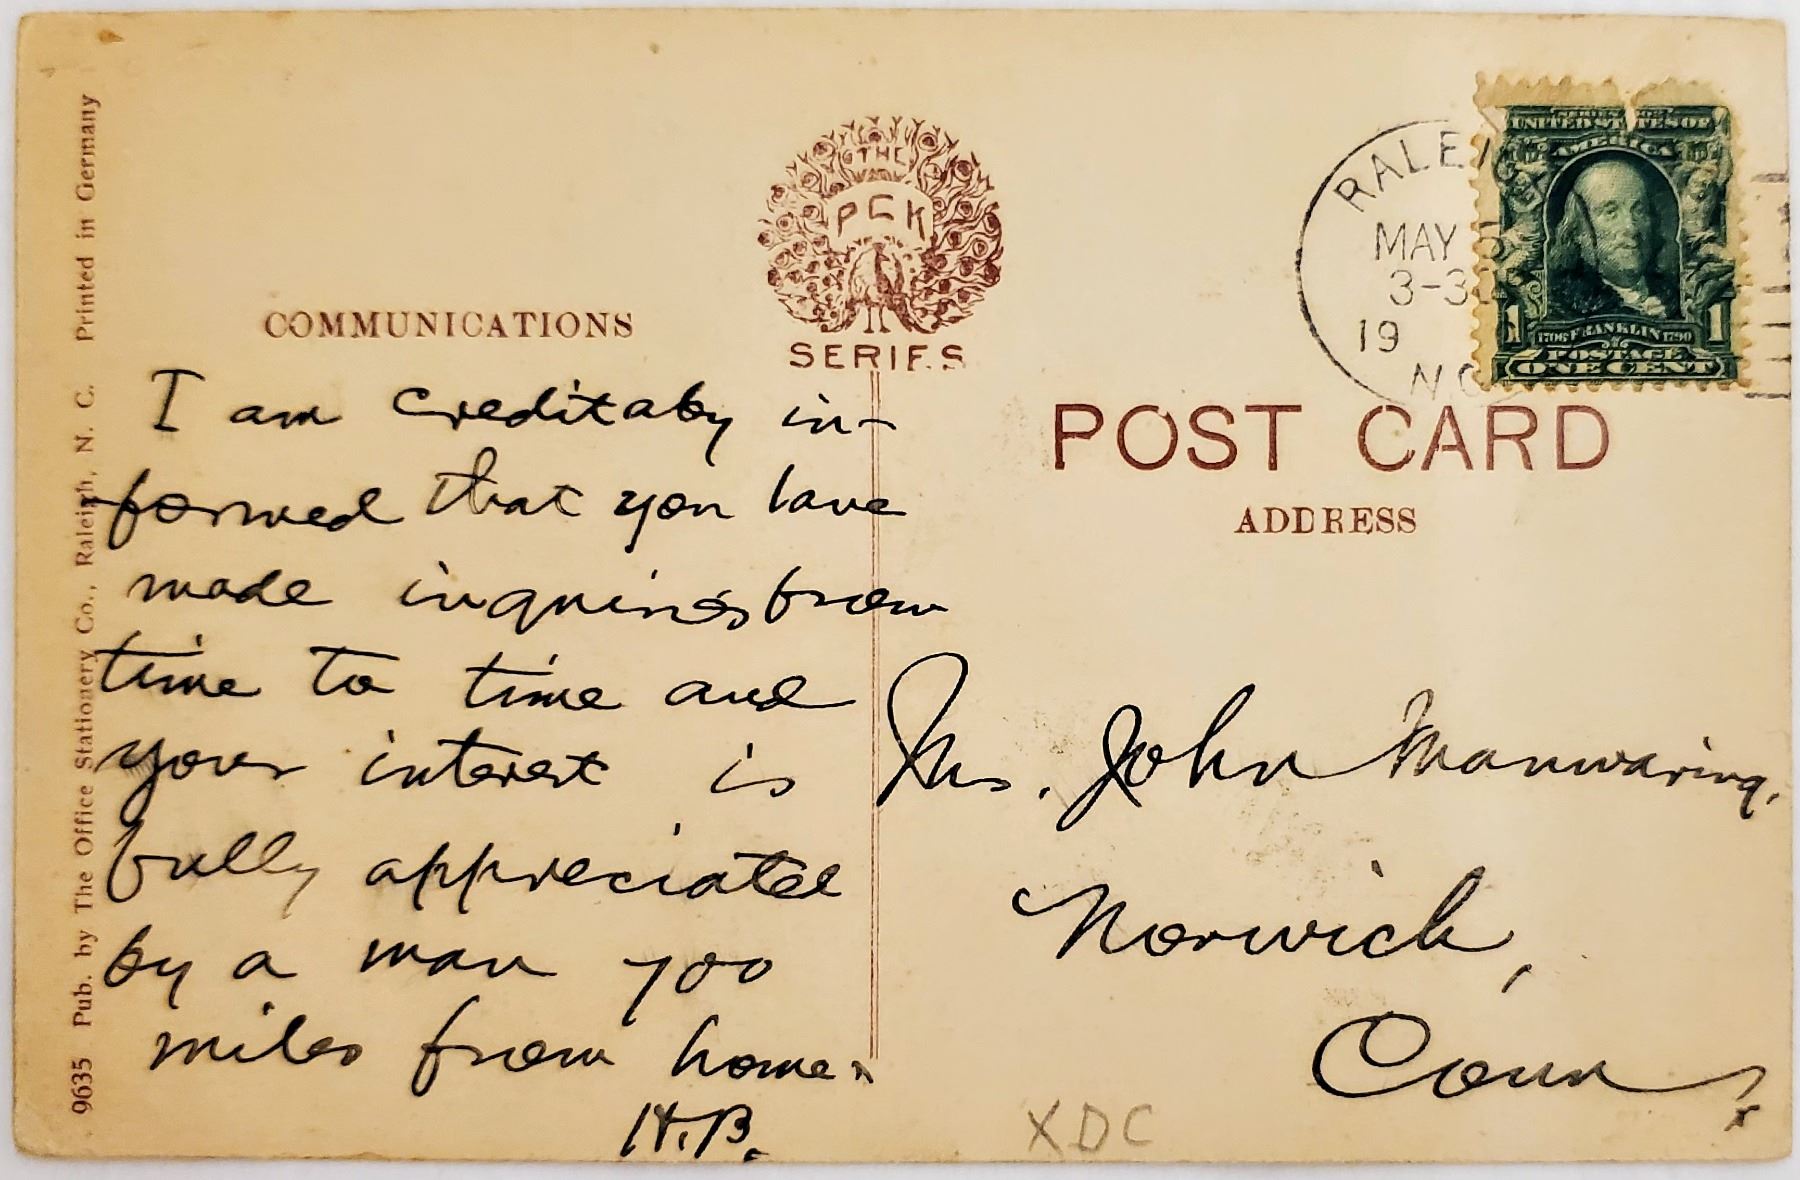 9635 Pub. by The Office Stationery Co., Raleigh, N. C. Printed in Germany
COMMUNICATIONS
THE
PCK
SERIES
I am creditaby in-
formed that you have
made inquiries from
time to time and
your interest is
fully appreciated
by a man 700
miles from home.
H.B.
RALEIG
MAY 5
3-30
19
N.C.
UNITED STATES OF
AMERICA
1 1706 FRANKLIN 1790 1
POSTAGE
ONE CENT
POST CARD
ADDRESS
Mrs. John Manwaring,
Norwich,
Conn
XDC